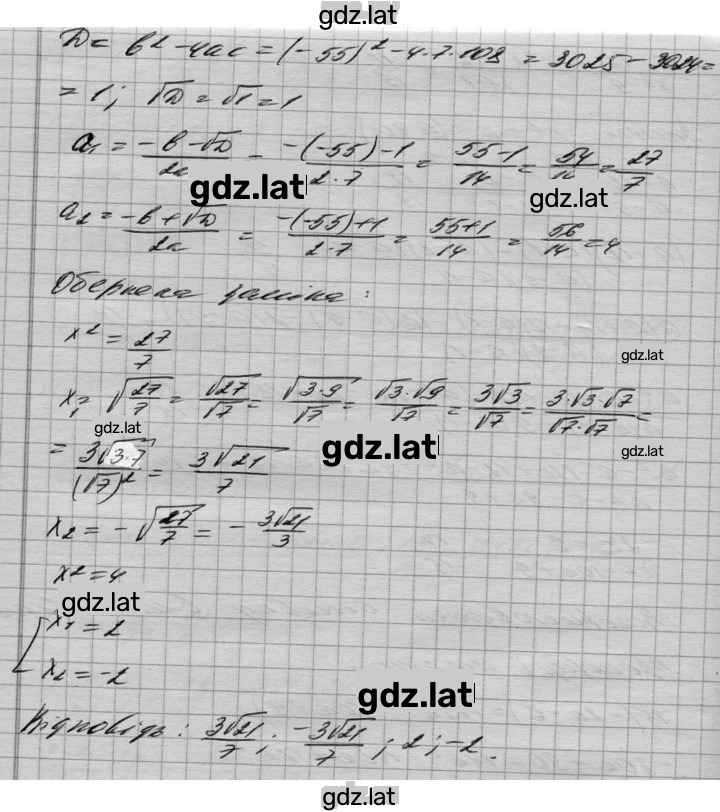 gdz.lat
D = b² - 4ac = (-55)² - 4·7·108 = 3025 - 3024 =
= 1; √D = √1 = 1
a₁ = (-b-√D)/2a = (-(-55)-1)/(2·7) = (55-1)/14 = 54/14 = 27/7
gdz.lat
gdz.lat
a₂ = (-b+√D)/2a = (-(-55)+1)/(2·7) = (55+1)/14 = 56/14 = 4
Обернена заміна:
x² = 27/7
gdz.lat
x₁ = √(27/7) = √27/√7 = √(3·9)/√7 = (√3·√9)/√7 = 3√3/√7 = (3·√3·√7)/(√7·√7) =
gdz.lat
gdz.lat
gdz.lat
= 3√(3·7)/(√7)² = 3√21/7
x₂ = -√(27/7) = -3√21/3
x² = 4
gdz.lat
[x₁ = 2
x₂ = -2
gdz.lat
Відповідь: 3√21/7; -3√21/7; 2; -2.
gdz.lat